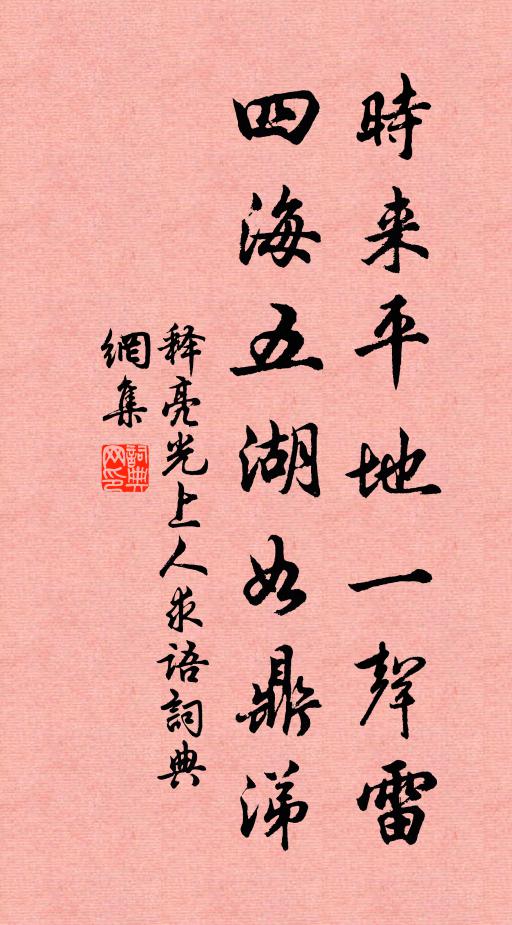 時来平地一聲雷
四海五湖如鼎涕
释亮光上人求語詞典
網集
詞典网印